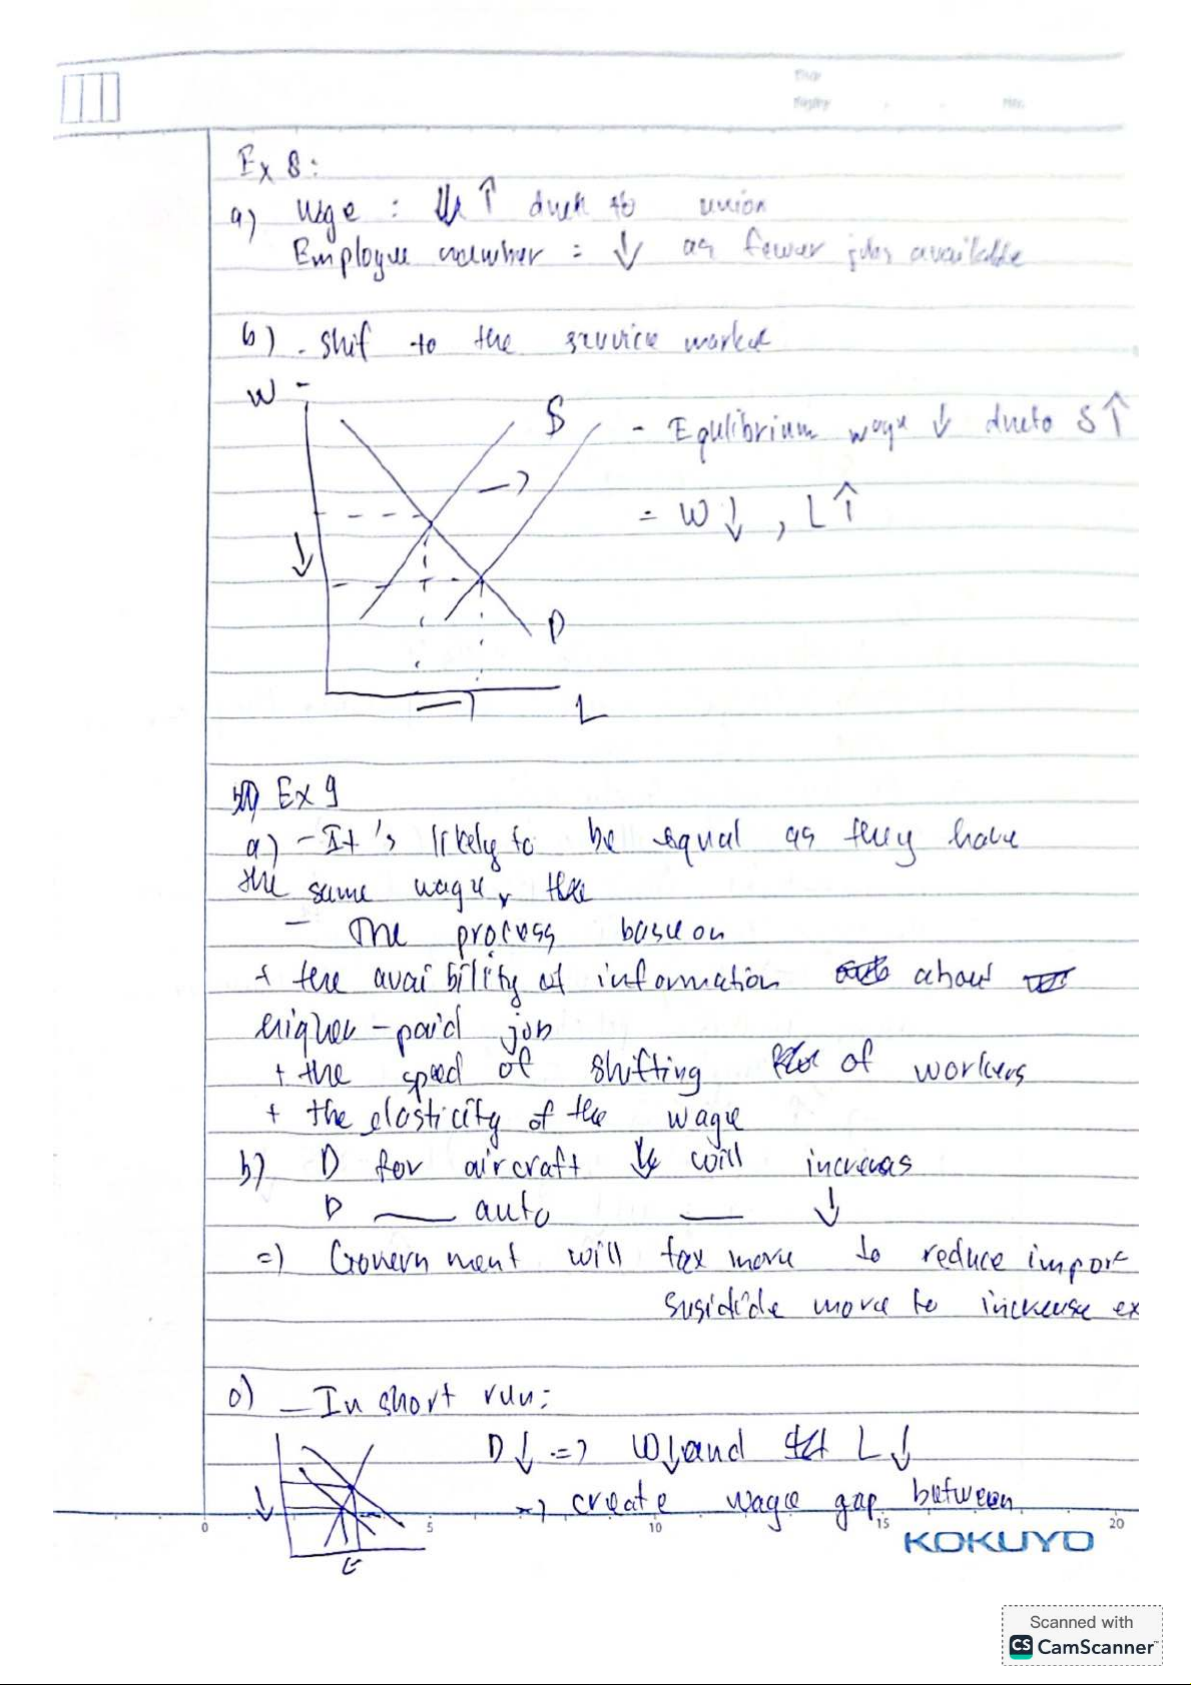 Ex 8:
a) Wage : ↑ due to union
Employee number : ↓ as fewer jobs available
b) - shif to the service market
W
S
- Equlibrium wage ↓ dueto S↑
= W↓ , L↑
D
L
Ex 9
a) - It's likely to be equal as they have
the same wage, the
- The process base on
+ the avaibility of information about
higher-paid job
+ the speed of shifting of workers
+ the elasticity of the wage
b) D for aircraft will increas
D — auto — ↓
=) Government will tax more to reduce impor
susidide more to increase ex
c) - In short run:
D↓ => W↓ and L↓
=> create wage gap between
E
0 5 10 15 20
KOKUYO
Scanned with
CS CamScanner